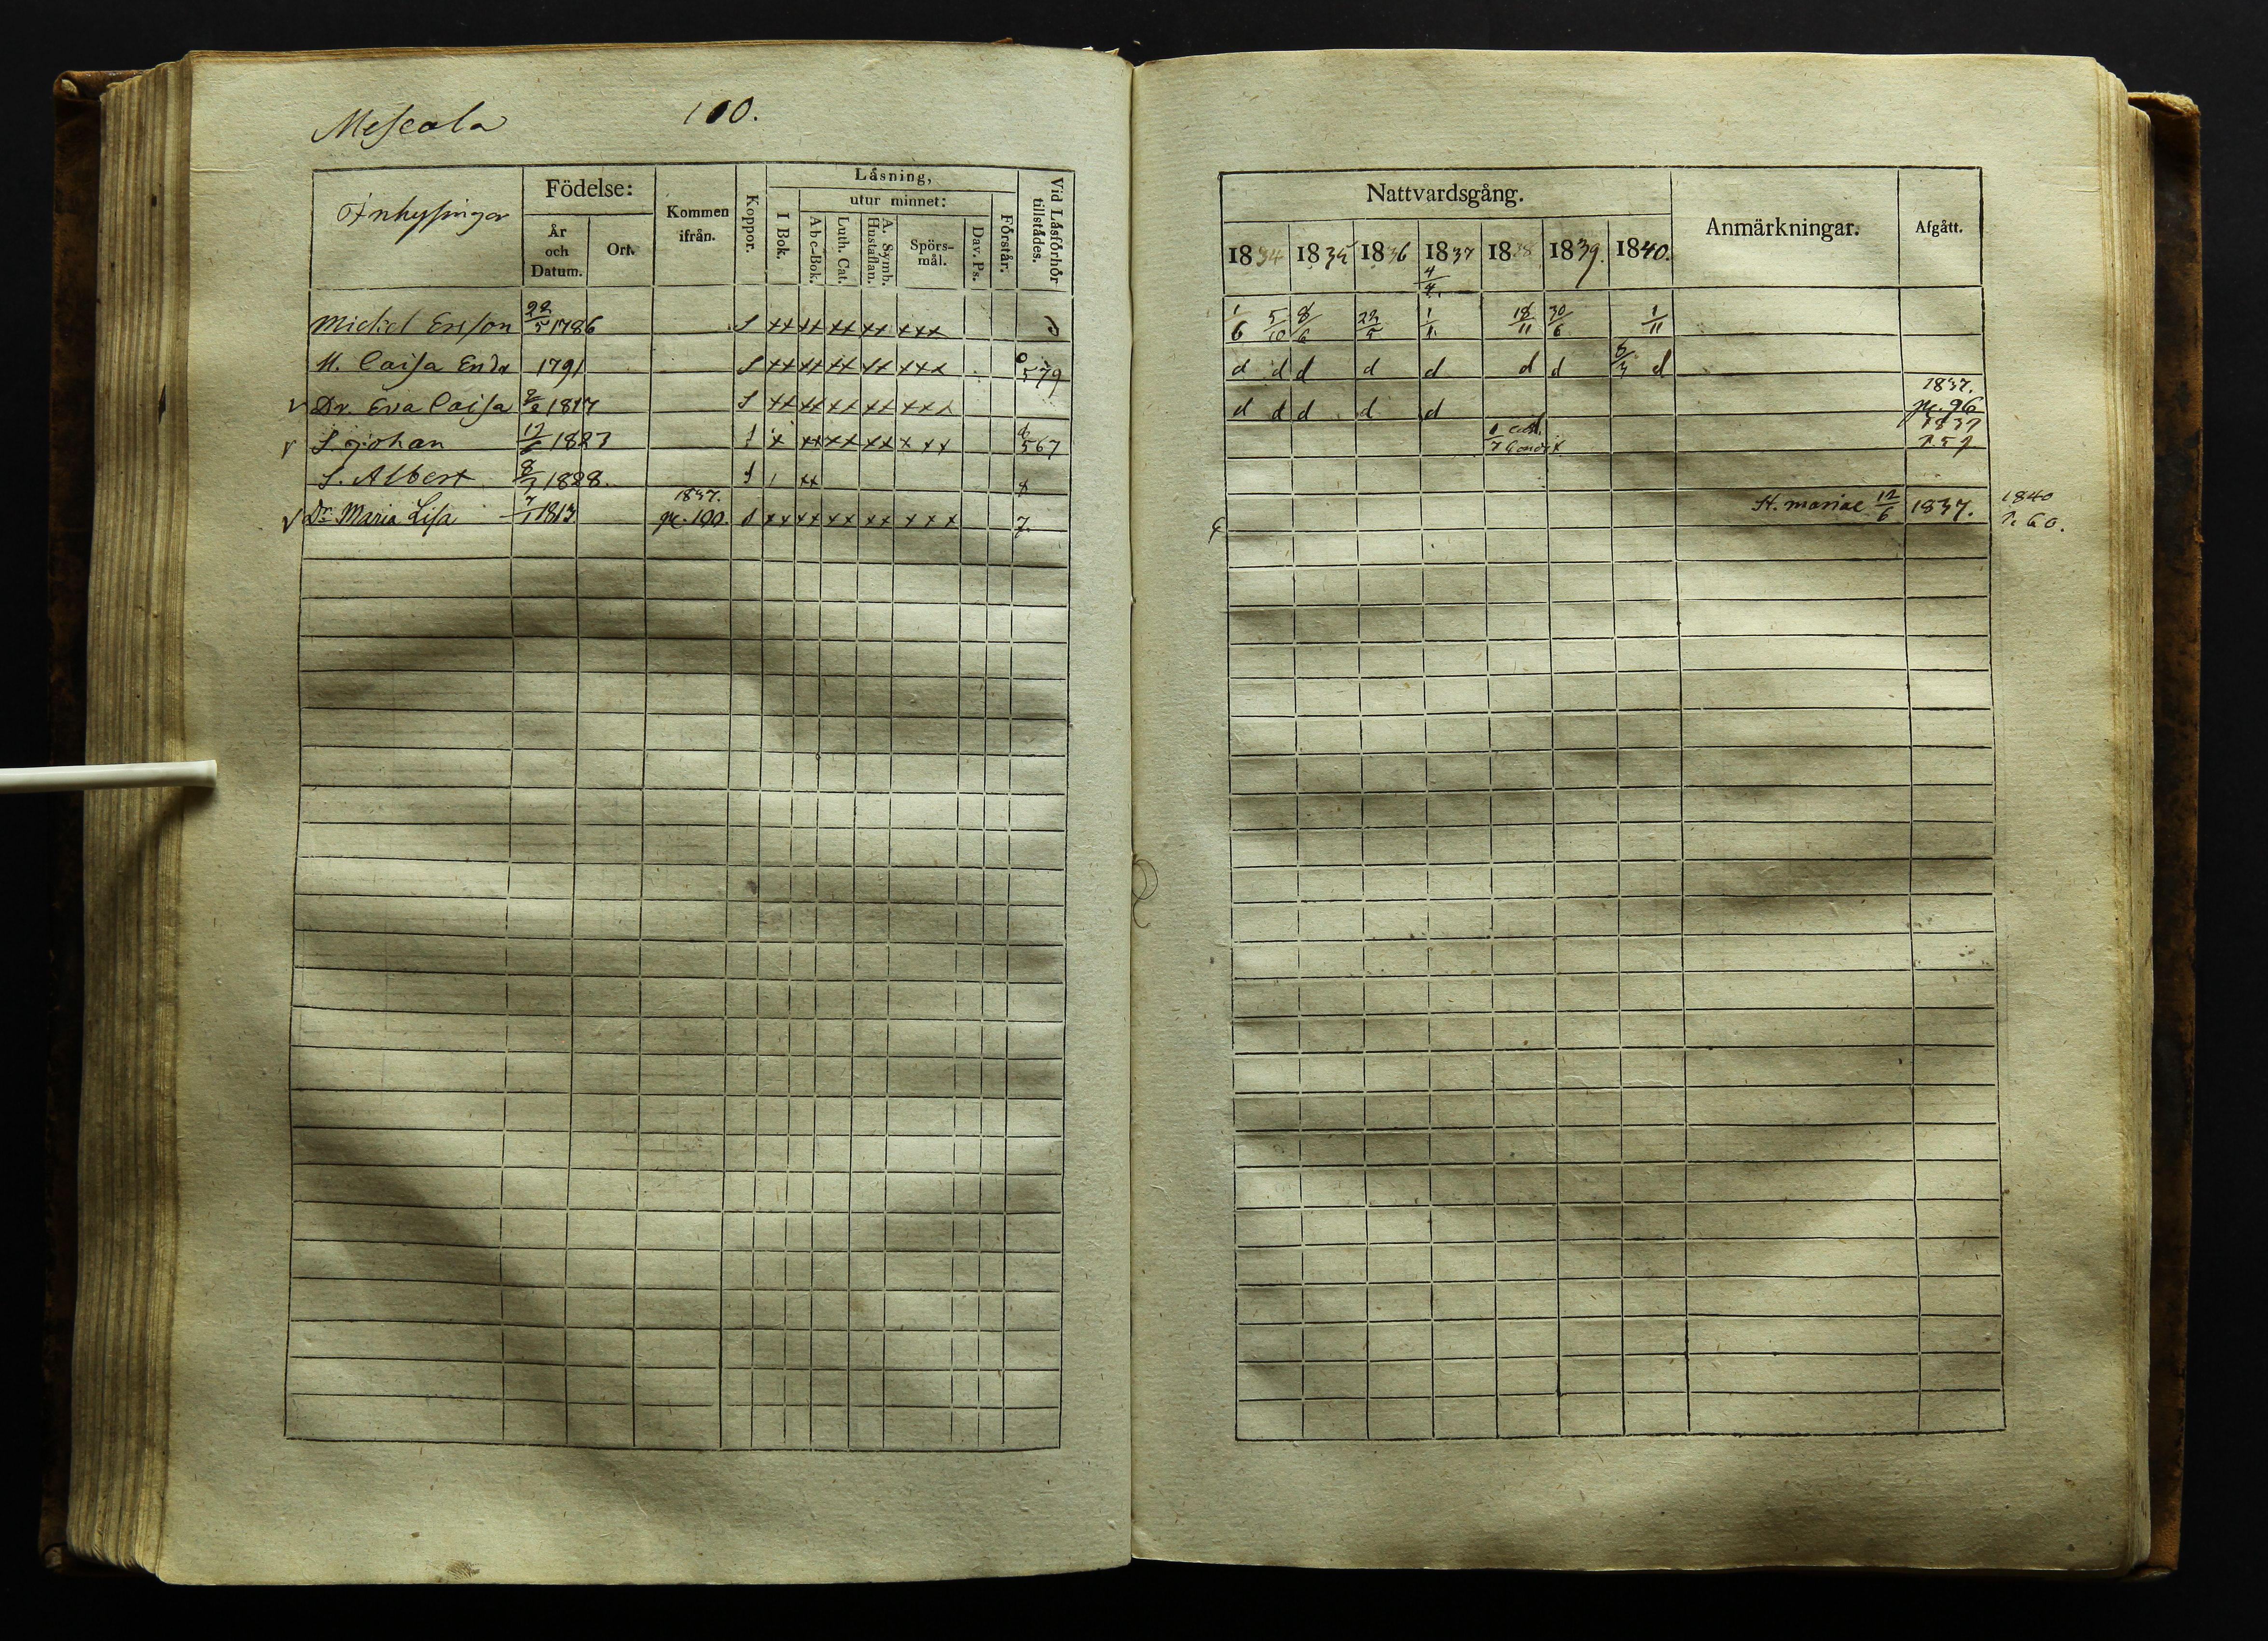 Mescala 100.
Inhysingar
Födelse: År och Datum. Ort. Kommen ifrån. Koppor. Läsning, I Bok. utur minnet: Abc-Bok. Luth. Cat. A. Symb. Hustaflan. Spörs-mål. Dav. Ps. Förstår. Vid Läsförhör tillstädes.
Mickel Ersson 22/5 1786 S xx xx xx xx xxx
H. Caisa Endr 1791 S xx xx xx xx xxx 0 579
v Dr. Eva Caisa 1817 S xx xx xx xx xxx
v S. Johan 1823 S x xx xx xx x xx 567
S. Albert 1828. S 1 xx 8
1837.
v Dr. Maria Lisa 7/1 1813 p. 100. S xx xx xx xx x x x 7.
Nattvardsgång. Anmärkningar. Afgått.
1834 1835 1836 1837 1838 1839. 1840.
4/4.
1/6 5/10 8/6 22/5 1/1. 18/11 30/6 1/11
d d d d d d d 5/3 d
1837.
d d d d d p. 96
1837
p. 59
St. mariae 12/6 1837. 1840
p. 60.